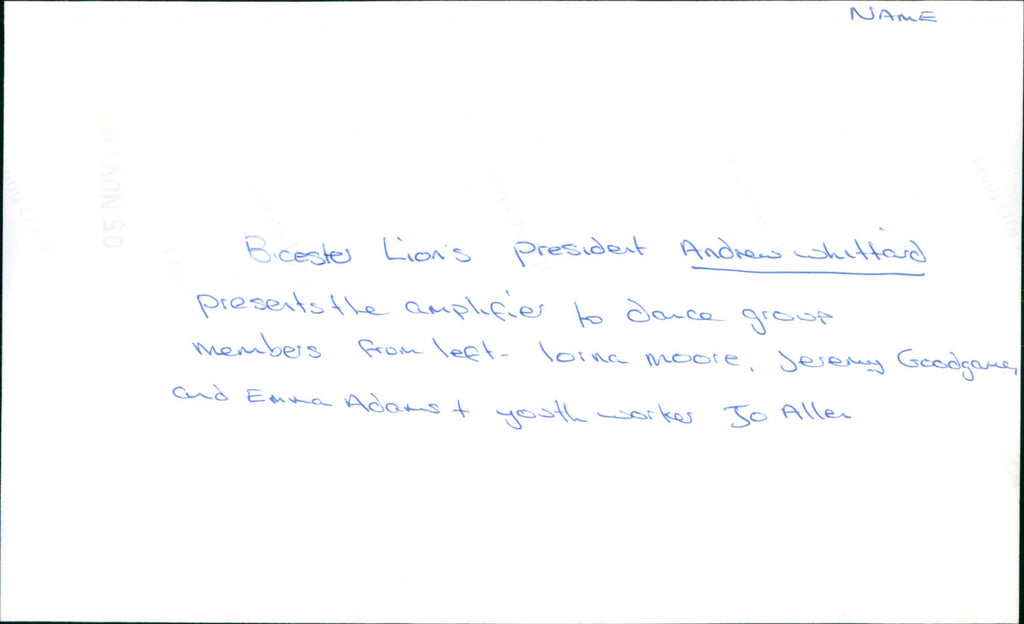 NAME
05 NOV
Bicester Lion's president Andrew Whittard
presents the amplifier to dance group
members from left - lorna moore, Jeremy Goodgame,
and Emma Adams + youth worker Jo Allen